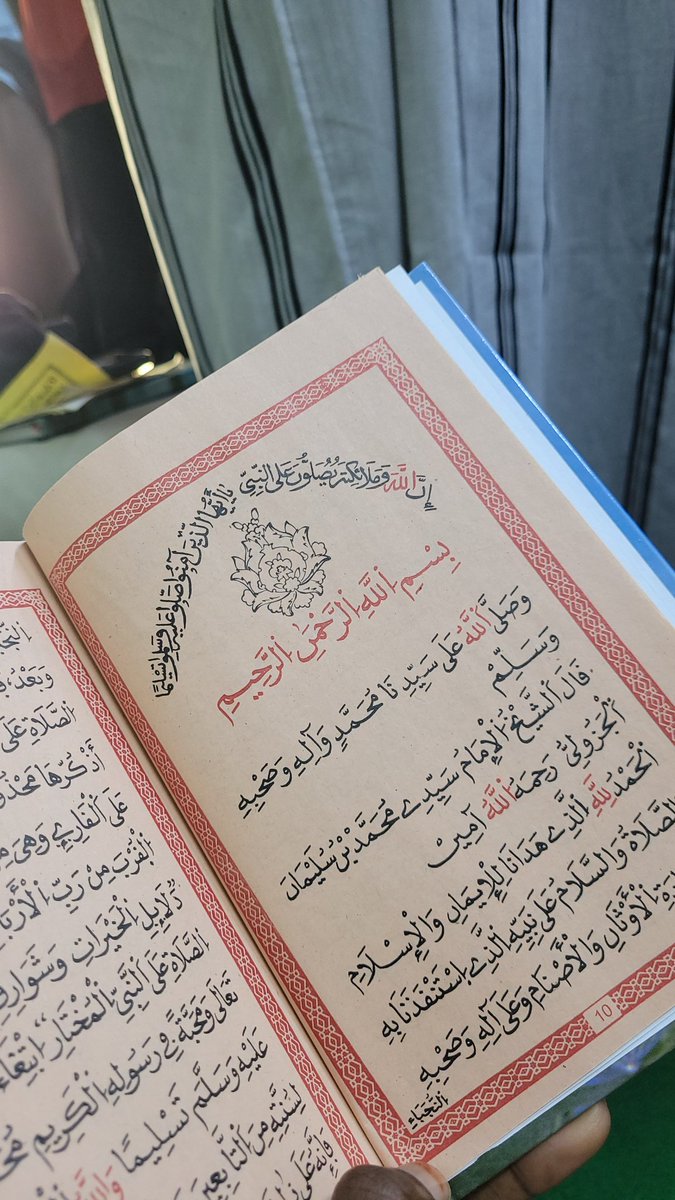 إِنَّ اللَّهَ وَمَلَائِكَتَهُ يُصَلُّونَ عَلَى النَّبِيِّ يَا أَيُّهَا الَّذِينَ آمَنُوا صَلُّوا عَلَيْهِ وَسَلِّمُوا تَسْلِيمًا
بِسْمِ اللَّهِ الرَّحْمَٰنِ الرَّحِيمِ
وَصَلَّى اللَّهُ عَلَى سَيِّدِنَا مُحَمَّدٍ وَآلِهِ وَصَحْبِهِ
وَسَلِّمْ
قَالَ الشَّيْخُ الْإِمَامُ سَيِّدِے مُحَمَّدْ بْنُ سُلَيْمَانَ
الْجَزُولِيُّ رَحِمَهُ اللَّهُ آمِينْ
الْحَمْدُ لِلَّهِ الَّذِے هَدَانَا لِلْإِيمَانِ وَالْإِسْلَامِ
الصَّلَاةُ وَالسَّلَامُ عَلَى نَبِيِّهِ الَّذِے اسْتَنْقَذَنَا بِهِ
الْأَوْثَانِ وَالْأَصْنَامِ وَعَلَى آلِهِ وَصَحْبِهِ
النُّجَبَاءِ
10
وَبَعْدُ،
الصَّلَاةِ عَلَى
أَذْكُرُهَا
عَلَى الْقَارِےِ وَهِيَ
الْقُرْبِ مِنْ رَبِّ
دَلَائِلِ الْخَيْرَاتِ وَشَوَارِقِ
الصَّلَاةِ عَلَى النَّبِيِّ الْمُخْتَارِ" ابْتِغَاءً
تَعَالَى وَمَحَبَّةً فِي رَسُولِهِ الْكَرِيمِ
عَلَيْهِ وَسَلَّمَ تَسْلِيمًا وَاللَّهُ
لِسُنَّتِهِ مِنَ التَّابِعِينَ
فَإِنَّهُ عَلَى